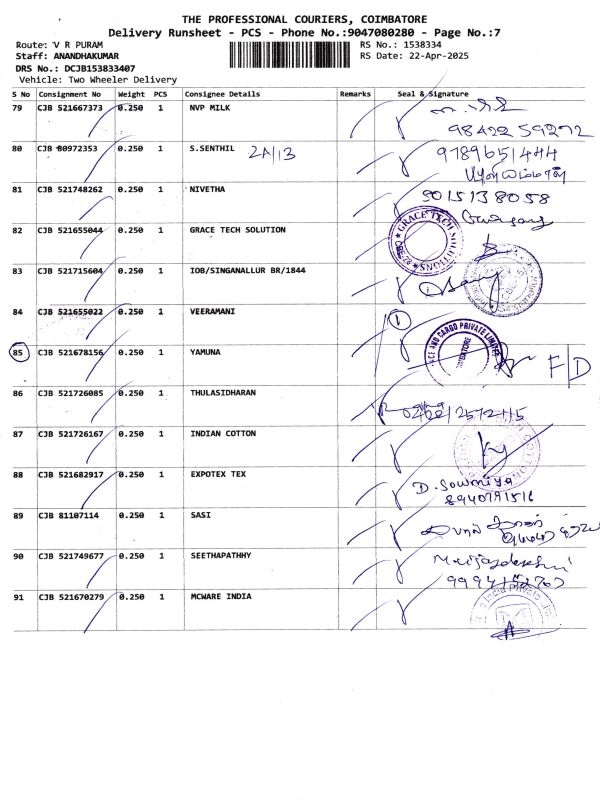 THE PROFESSIONAL COURIERS, COIMBATORE
Delivery Runsheet - PCS - Phone No.:9047080280 - Page No.:7
Route: V R PURAM
Staff: ANANDHAKUMAR
DRS No.: DCJB153833407
Vehicle: Two Wheeler Delivery
RS No.: 1538334
RS Date: 22-Apr-2025
S No Consignment No Weight PCS Consignee Details Remarks Seal & Signature
79 CJB 521667373 0.250 1 NVP MILK
98422 59272
80 CJB 80972353 0.250 1 S.SENTHIL 2A/13 9789651444
81 CJB 521748262 0.250 1 NIVETHA 9015138058
82 CJB 521655044 0.250 1 GRACE TECH SOLUTION GRACE TECH SOLUTIONS CBE-28
83 CJB 521715604 0.250 1 IOB/SINGANALLUR BR/1844
84 CJB 521655022 0.250 1 VEERAMANI 1
85 CJB 521678156 0.250 1 YAMUNA AND CARGO PRIVATE LIMITED F/D
86 CJB 521726085 0.250 1 THULASIDHARAN
87 CJB 521726167 0.250 1 INDIAN COTTON
88 CJB 521682917 0.250 1 EXPOTEX TEX D. Sowmiya
8940791516
89 CJB 81107114 0.250 1 SASI
90 CJB 521749677 0.250 1 SEETHAPATHHY
91 CJB 521670279 0.250 1 MCWARE INDIA India Private